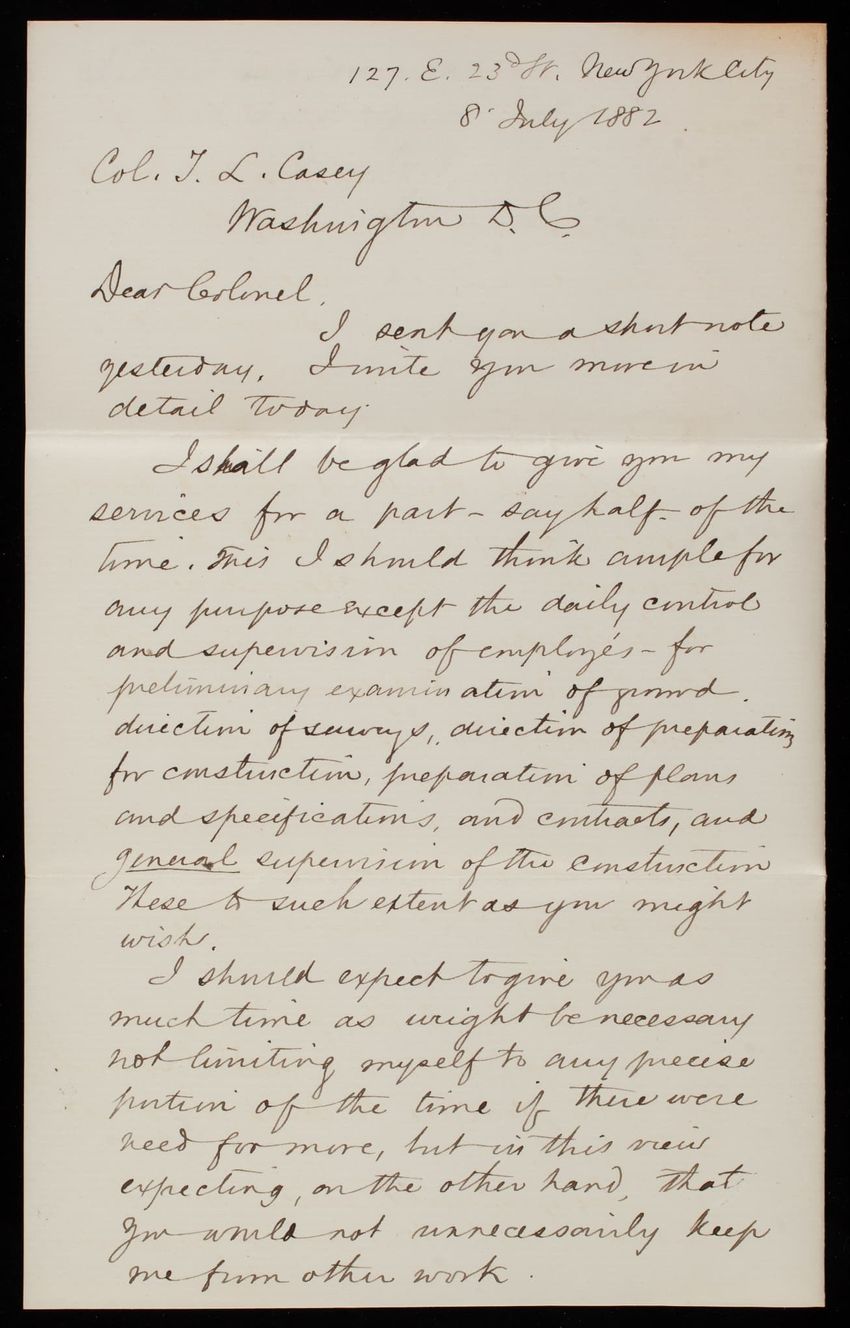 127. E. 23d St. New York City
8 July 1882
Col. T. L. Casey
Washington D. C.
Dear Colonel.
I sent you a short note
yesterday. I write you more in
detail today.
I shall be glad to give you my
services for a part - say half - of the
time. This I should think ample for
any purpose except the daily control
and supervision of employés - for
preliminary examination of ground.
direction of surveys, direction of preparations
for construction, preparation of plans
and specifications, and contracts, and
general supervision of the construction
These to such extent as you might
wish.
I should expect to give you as
much time as might be necessary
not limiting myself to any precise
portion of the time if there were
need for more, but in this view
expecting, on the other hand, that
you would not unnecessarily keep
me from other work.